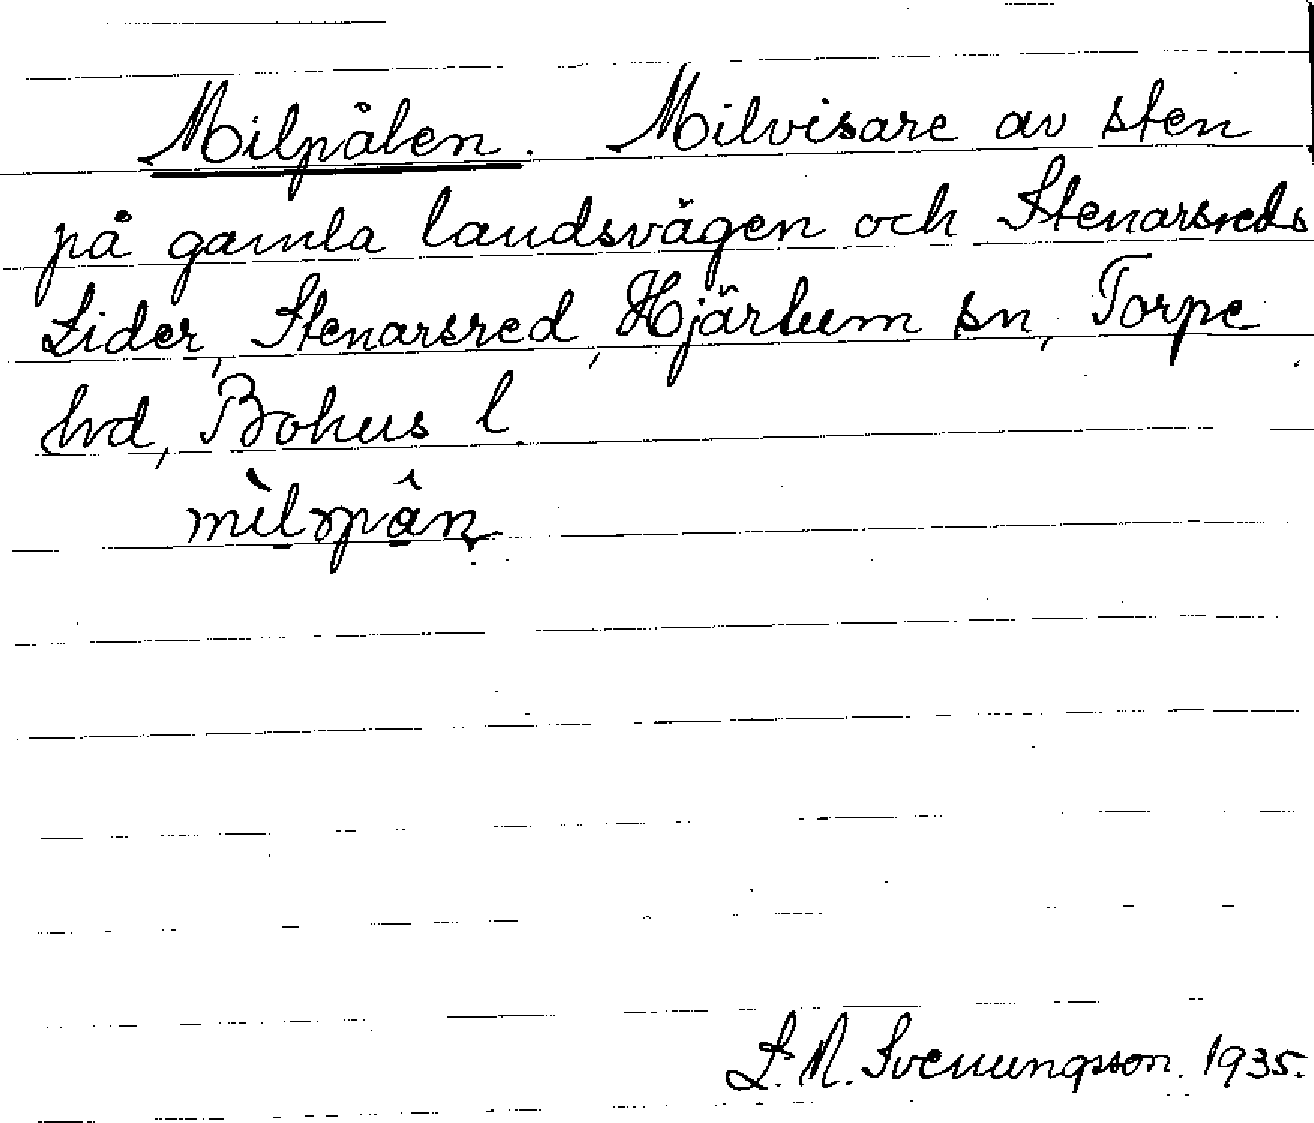 Milpålen. Milvisare av sten
på gamla landsvägen och Stenarsreds
Lider, Stenarsred, Hjärtum sn, Torpe
hrd, Bohus l.
L. M. Svenungsson. 1935.